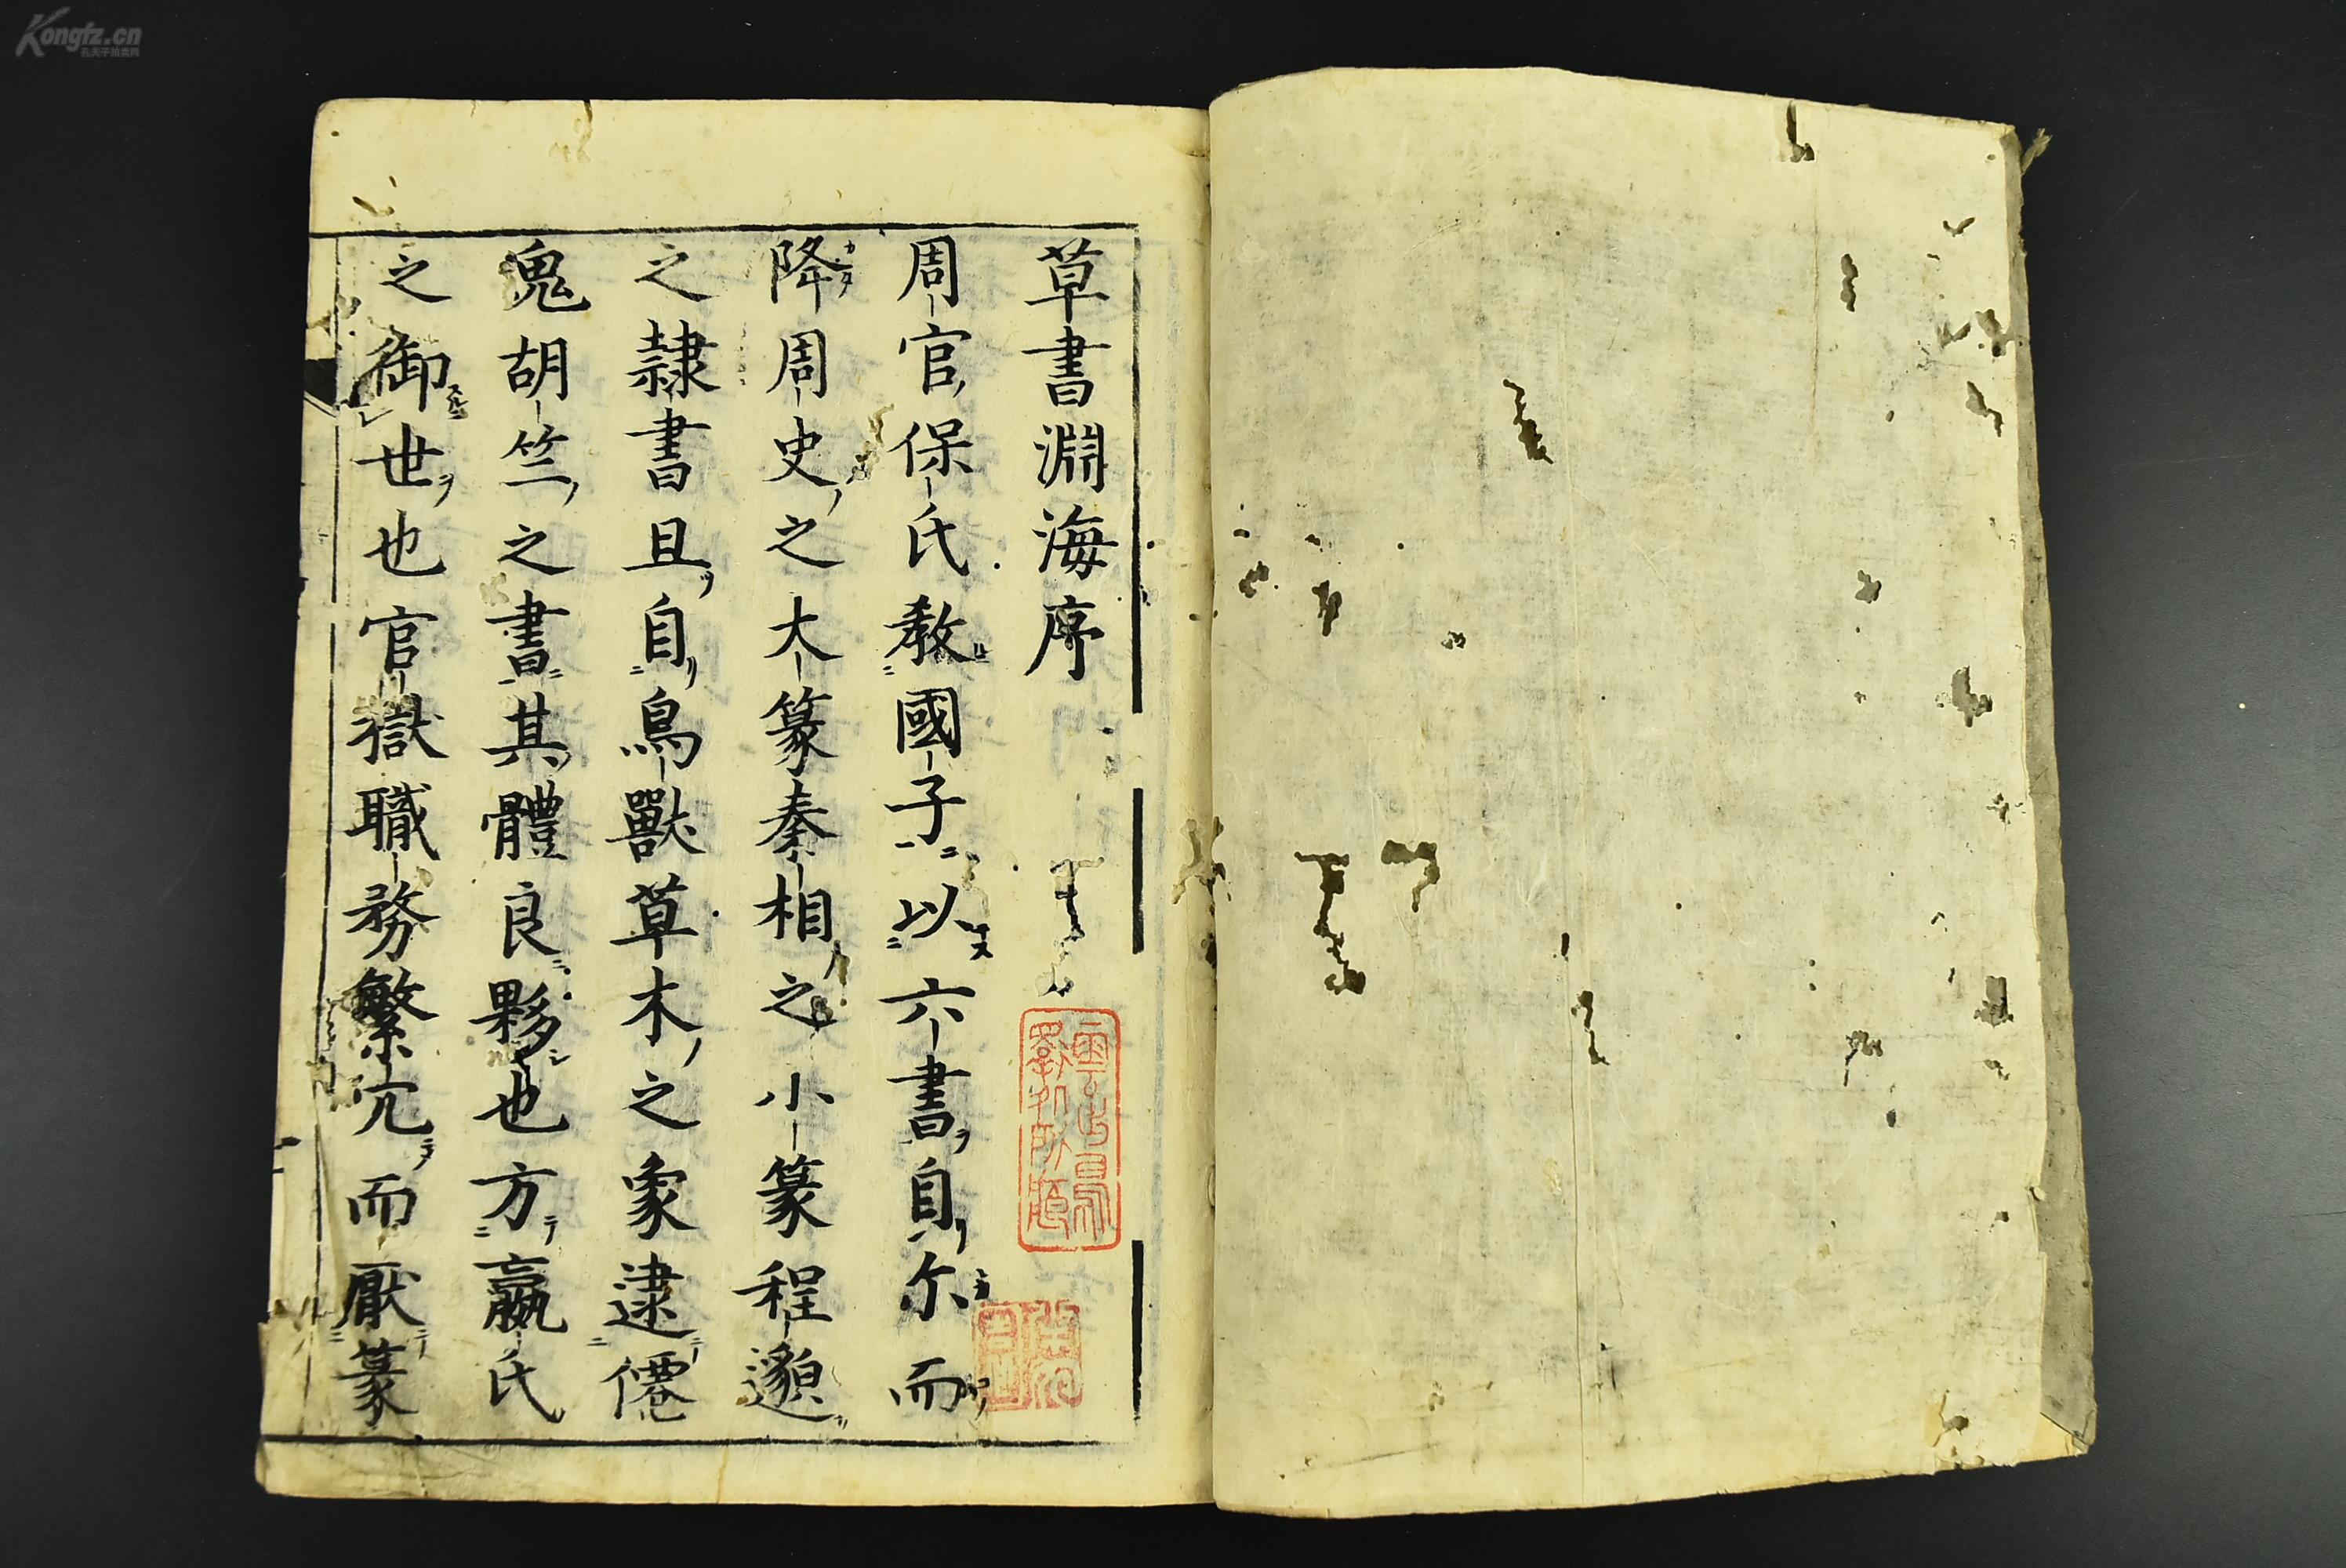 草書淵海序
周官保氏教國子以六書自尔而
降周史之大篆秦相之小篆程邈
之隷書且自鳥獸草木之象逮僊
鬼胡竺之書其體良夥也方嬴氏
之御世也官獄職務繁冗而厭篆
Kongfz.cn